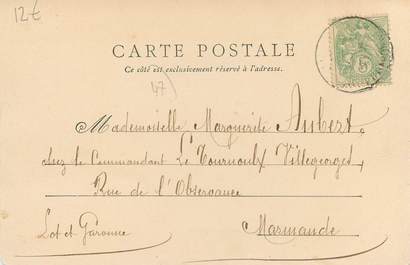 12€
CARTE POSTALE
Ce côté est exclusivement réservé à l'adresse.
47
Mademoiselle Marguerite Aubert,
chez le Commandant Le Tournoulx Villegeorges,
Rue de l'Observance
Lot et Garonne Marmande